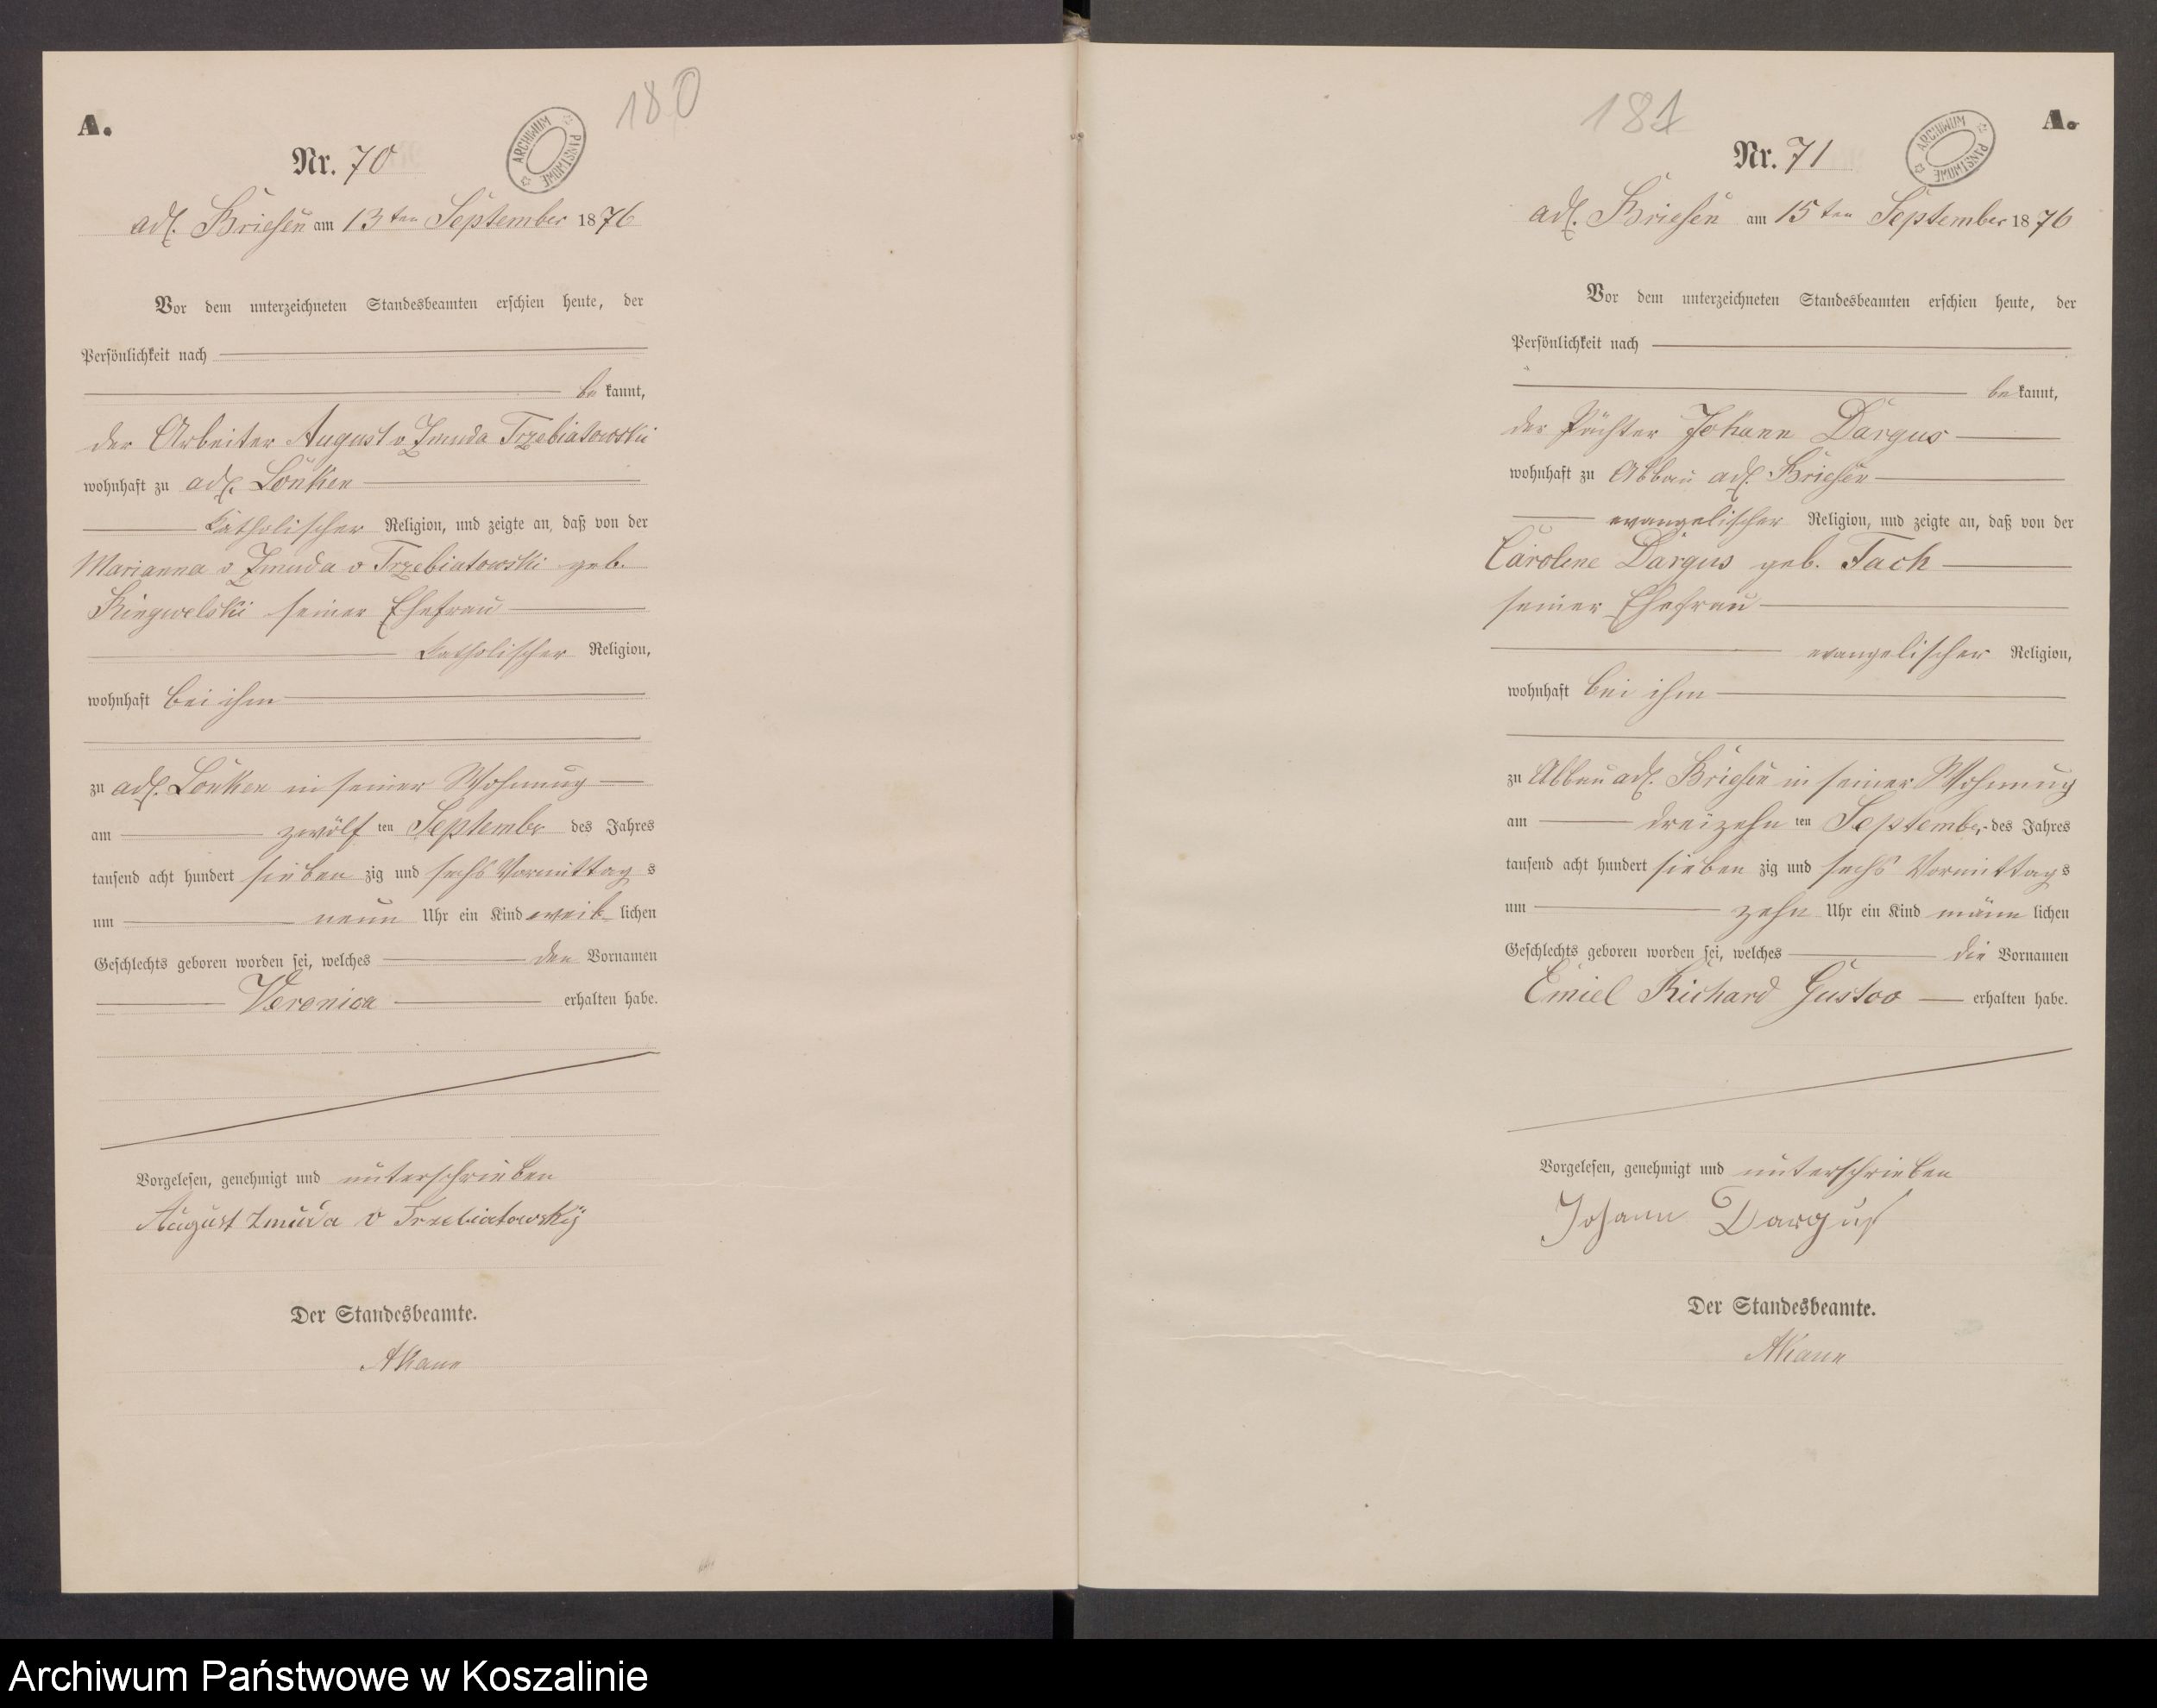 180
A.
ARCHIWUM PAŃSTWOWE
Nr. 70
adl. Briesen am 13ten September 1876
Vor dem unterzeichneten Standesbeamten erschien heute, der
Persönlichkeit nach
be kannt,
der Arbeiter August v Zmuda Trzebiatowski
wohnhaft zu adl. Lonken
katholischer Religion, und zeigte an, daß von der
Marianna v Zmuda v Trzebiatowski geb.
Ringwelski seiner Ehefrau
katholischer Religion,
wohnhaft bei ihm
zu adl. Lonken in seiner Wohnung
am zwölf ten September des Jahres
tausend acht hundert sieben zig und sechs Vormittag s
um neun Uhr ein Kind weib lichen
Geschlechts geboren worden sei, welches den Vornamen
Veronica erhalten habe.
Vorgelesen, genehmigt und unterschrieben
August Zmuda v Trzebiatowskÿ
Der Standesbeamte.
181
A.
ARCHIWUM PAŃSTWOWE
Nr. 71
adl. Briesen am 15ten September 1876
Vor dem unterzeichneten Standesbeamten erschien heute, der
Persönlichkeit nach
be kannt,
der Pächter Johann Dargus
wohnhaft zu Abbau adl. Briesen
evangelischer Religion, und zeigte an, daß von der
Caroline Dargus geb. Tach
seiner Ehefrau
evangelischer Religion,
wohnhaft bei ihm
zu Abbau adl. Briesen in seiner Wohnung
am dreizehn ten September des Jahres
tausend acht hundert sieben zig und sechs Vormittag s
um zehn Uhr ein Kind männ lichen
Geschlechts geboren worden sei, welches die Vornamen
Emiel Richard Gustav erhalten habe.
Vorgelesen, genehmigt und unterschrieben
Johann Dargus
Der Standesbeamte.
Archiwum Państwowe w Koszalinie